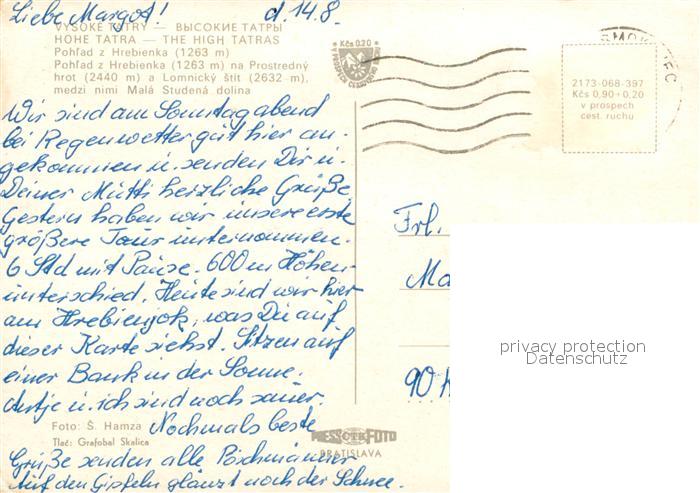 Liebe Margot! d. 14.8.
VYSOKÉ TATRY — ВЫСОКИЕ ТАТРЫ
HOHE TATRA — THE HIGH TATRAS
Pohľad z Hrebienka (1263 m)
Pohľad z Hrebienka (1263 m) na Prostredný
hrot (2440 m) a Lomnický štít (2632 m),
medzi nimi Malá Studená dolina
Kčs 0,20
SMOKOVEC
2173-068-397
Kčs 0,90+0,20
v prospech
cest. ruchu
Wir sind am Sonntag abend
bei Regenwetter gut hier an-
gekommen u. senden Dir u.
Deiner Mutti herzliche Grüße.
Gestern haben wir unsere erste
größere Tour unternommen.
6 Std mit Pause. 600 m Höhen-
unterschied. Heute sind wir hier
am Hrebienjok, was Du auf
dieser Karte siehst. Sitzen auf
einer Bank in der Sonne.
Antje u. ich sind noch
Nochmals beste
Grüße senden alle
Auf den Gipfeln glänzt noch der Schnee.
Frl.
Ma
90
privacy protection
Datenschutz
Foto: Š. Hamza
Tlač: Grafobal Skalica
PRESSFOTO
BRATISLAVA